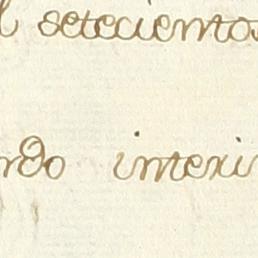 l setecientos
rdo interi